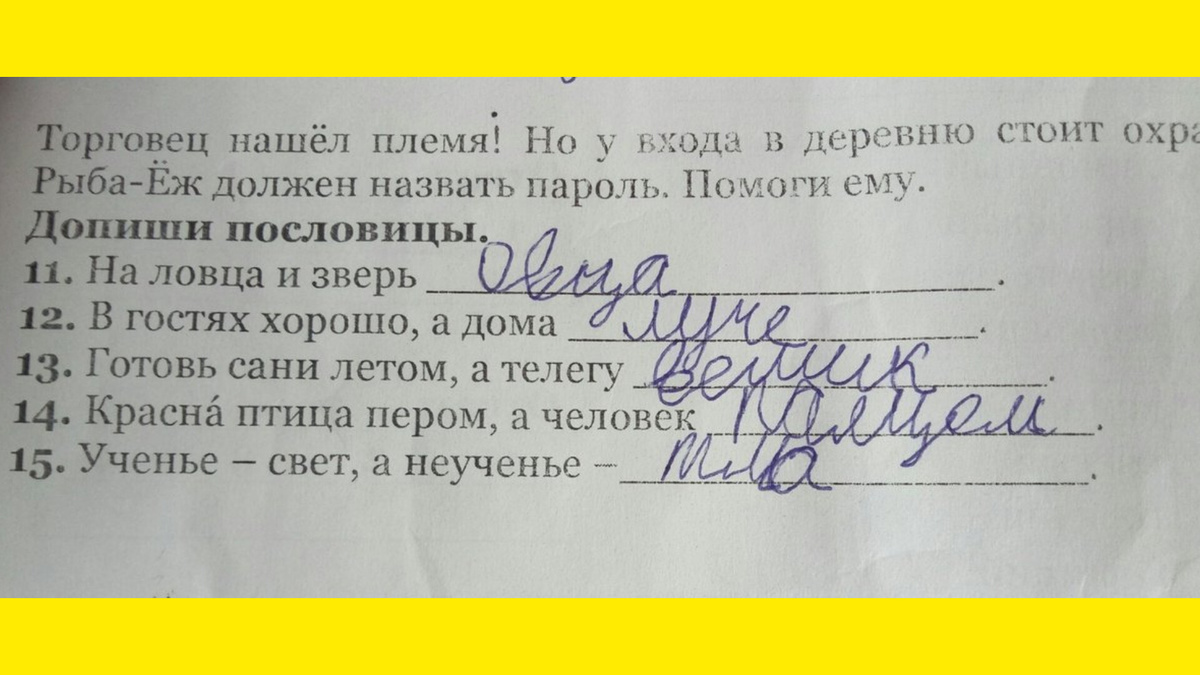 Торговец нашёл племя! Но у входа в деревню стоит охра
Рыба-Ёж должен назвать пароль. Помоги ему.
Допиши пословицы.
11. На ловца и зверь овца.
12. В гостях хорошо, а дома луче.
13. Готовь сани летом, а телегу веник.
14. Краснá птица пером, а человек палцом.
15. Ученье – свет, а неученье – тма.